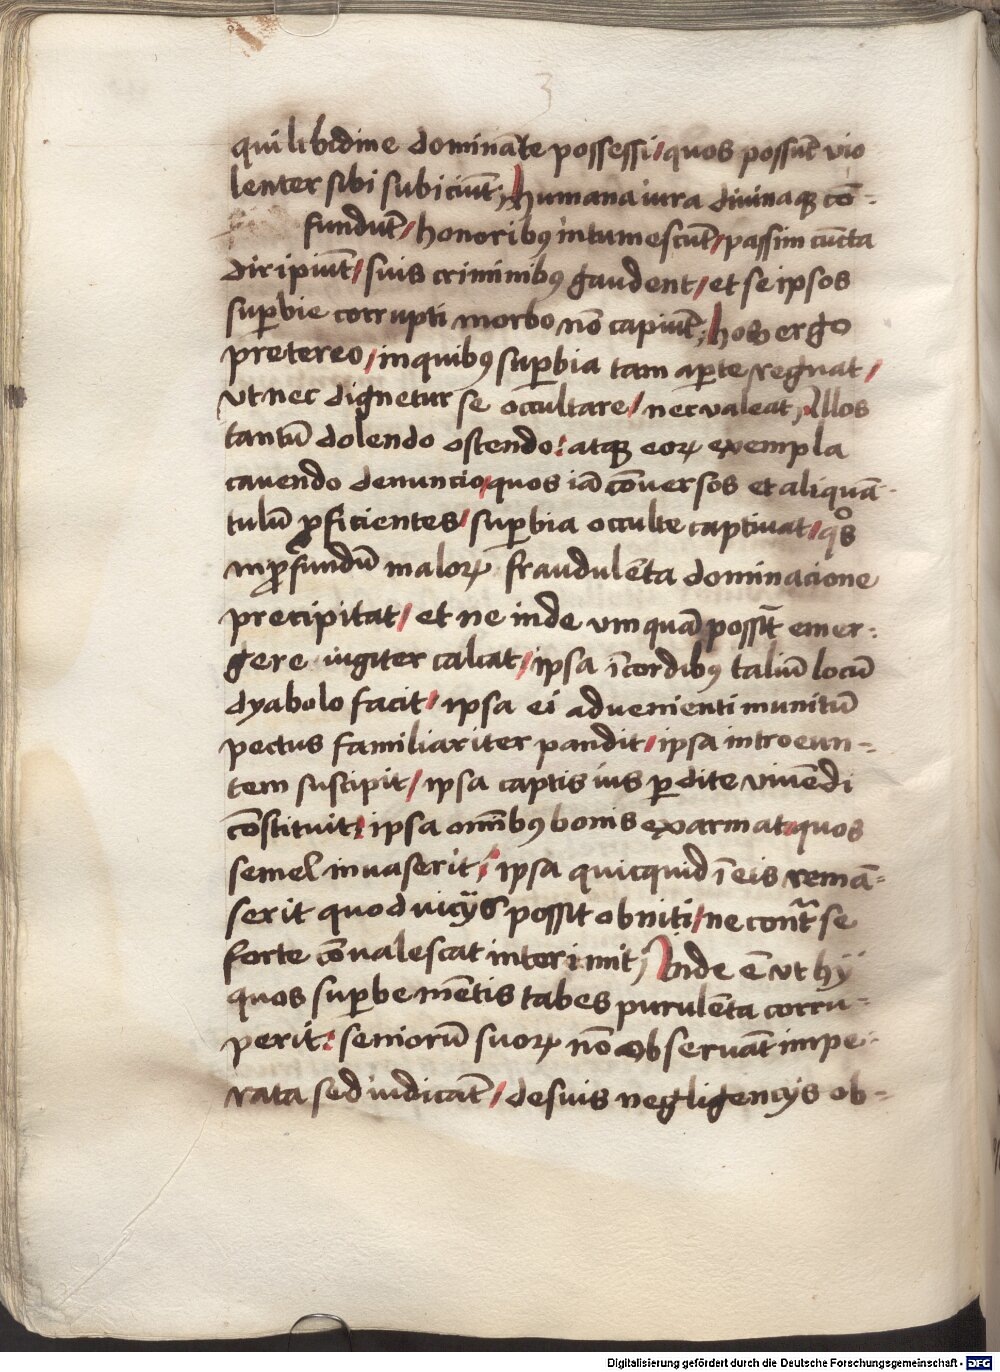 3
qui libidine dominãte possessi / quos possũt vio
lenter sibi subiciũt; humana iura diuinaqꝫ cõ-
fundũt / honoribꝰ intumescũt / passim cũcta
diripiũt / suis criminibꝰ gaudent / et se ipsos
suꝑbie corrupti morbo nõ capiũt; hos ergo
pretereo / in quibꝰ suꝑbia tam aꝑte regnat /
vt nec dignetur se occultare / nec valeat; Illos
tantũ dolendo ostendo: atqꝫ eoꝝ exempla
cauendo denuncio / quos iã cõuersos et aliquã-
tulũ ꝓficientes / suꝑbia occulte captiuat / qͦs
in ꝓfundũ maloꝝ fraudulẽta dominacione
precipitat / et ne inde vmquã possĩt emer-
gere iugiter calcat / ipsa ĩ cordibꝰ taliũ locũ
dyabolo facit / ipsa ei aduenienti munitũ
pectus familiariter pandit / ipsa introeun-
tem suscipit / ipsa captis ius ꝑdite viuẽdi
cõstituit: ipsa om̃ibꝰ bonis exarmat / quos
semel inuaserit: ipsa quicquid ĩ eis remã-
serit quod vicijs possit obniti / ne cont̃ se
forte cõualescat interimit; Inde ẽ vt hij
quos suꝑbe mẽtis tabes purulẽta corru-
perit: seniorũ suoꝝ nõ obseruãt impe-
rata sed iudicãt / de suis negligencijs ob-
Digitalisierung gefördert durch die Deutsche Forschungsgemeinschaft - DFG